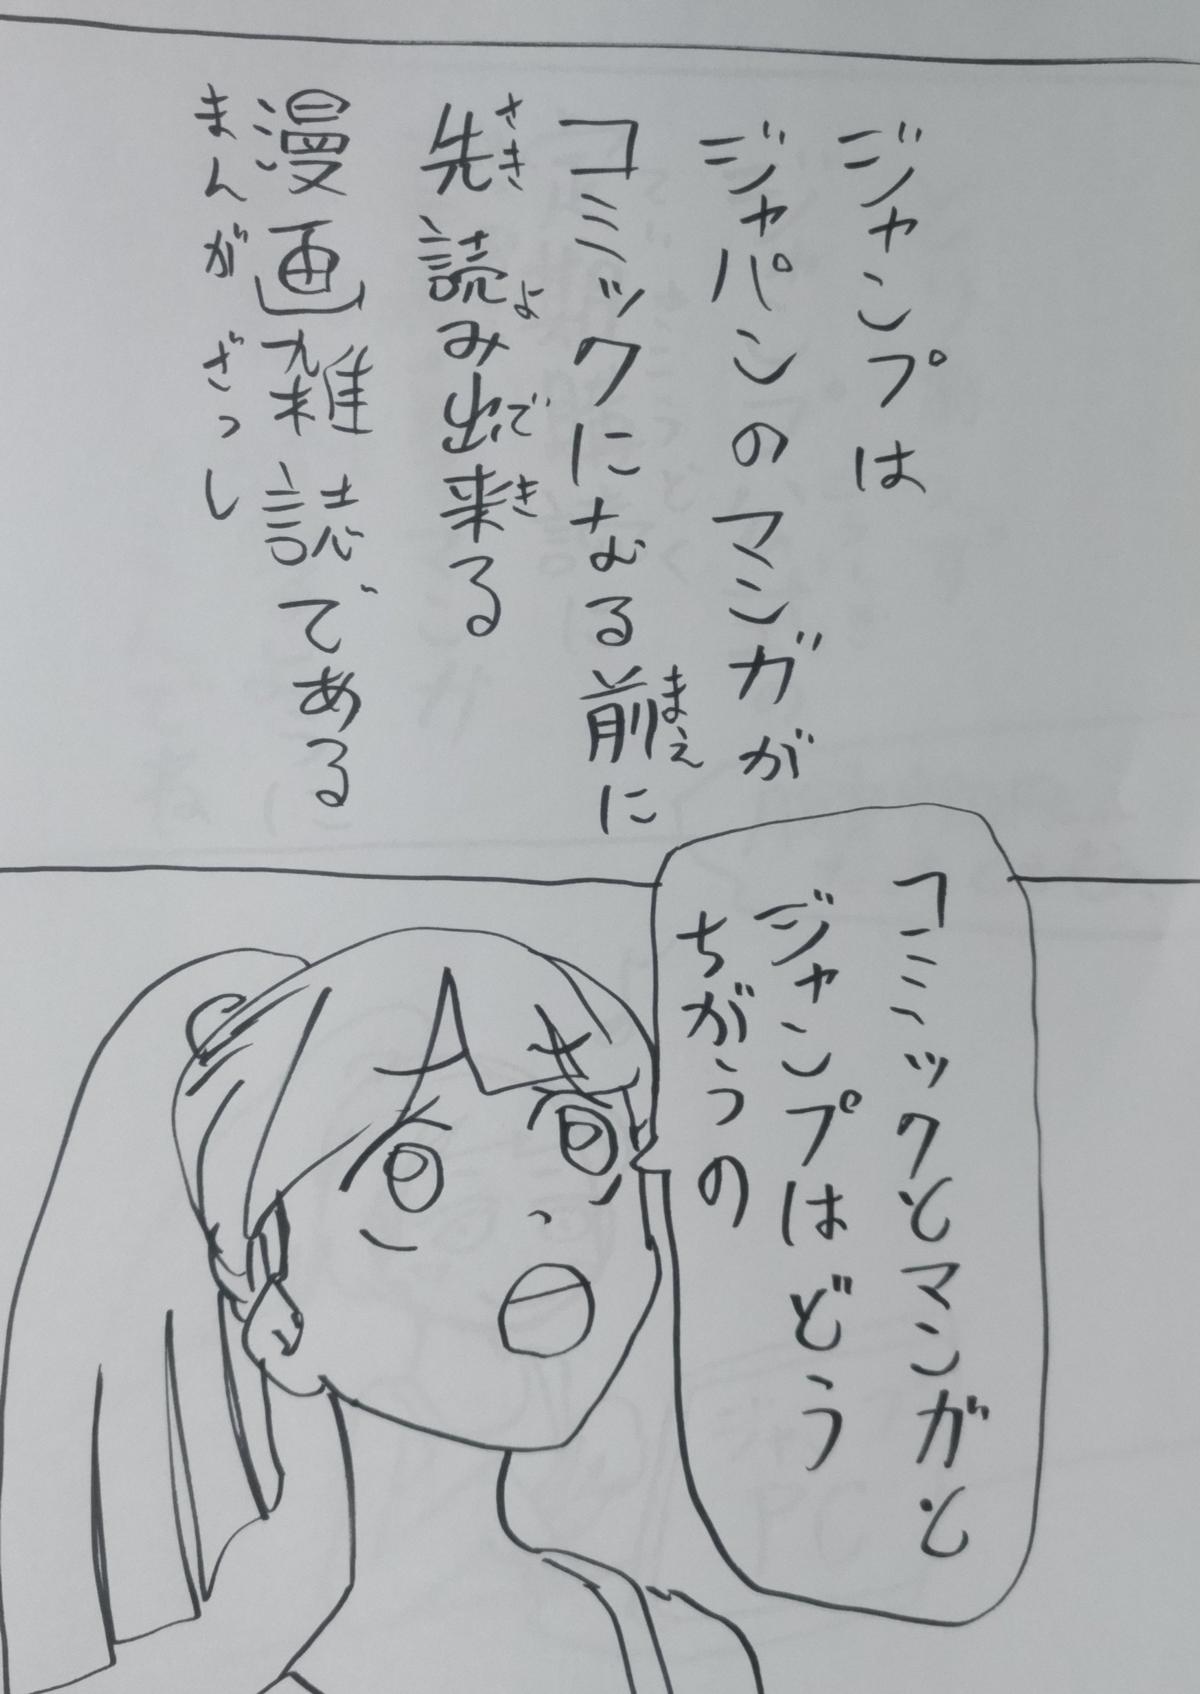 ジャンプは
ジャパンのマンガが
コミックになる前に
まえ
先読み出来る
さき よ でき
漫画雑誌である
まんが ざっし
コミックとマンガと
ジャンプはどう
ちがうの